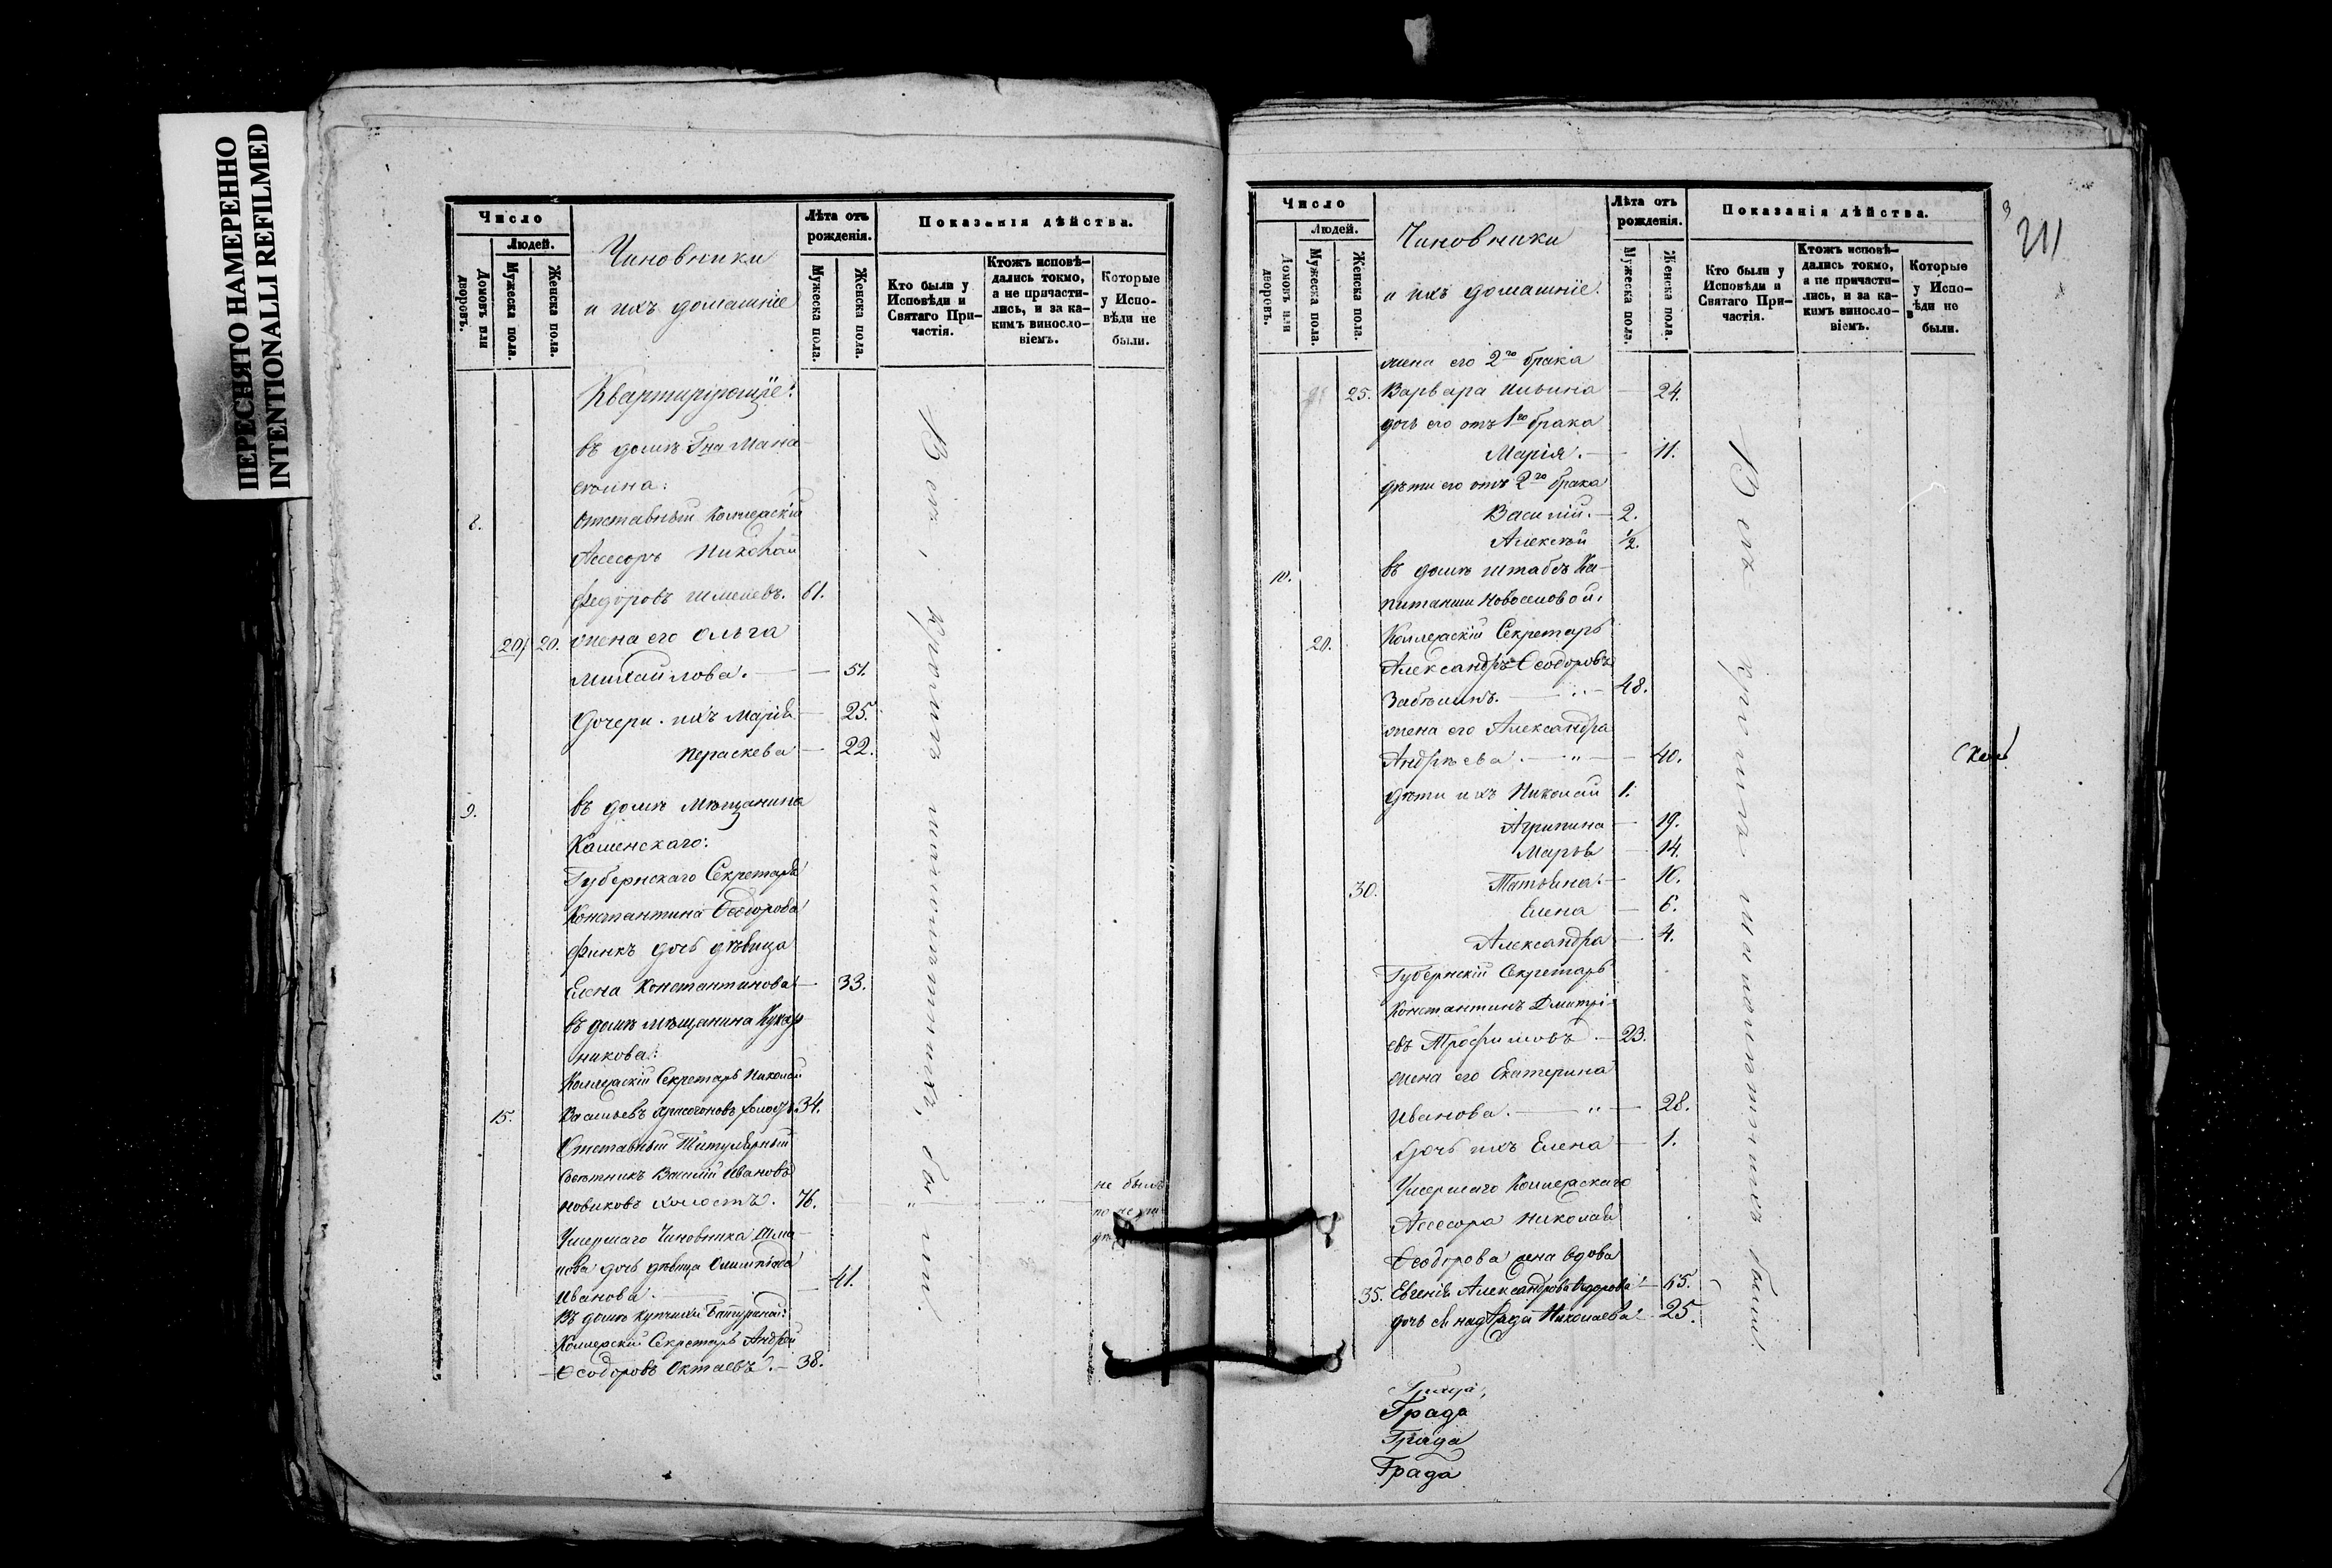 ПЕРЕСНЯТО НАМЕРЕННО
INTENTIONALLI REFILMED
Число
Людей.
Домовъ или дворовъ.
Мужеска пола.
Женска пола.
Чиновники
и ихъ домашніе
Лѣта отъ рожденія.
Мужеска пола.
Женска пола.
Показанія дѣйства.
Кто были у Исповѣди и Святаго При-частія.
Ктожъ исповѣ-дались токмо, а не причасти-лись, и за ка-кимъ винословіемъ.
Которые у Испо-вѣди не были.
Квартирующіе:
въ домѣ Гна Мана-
8. Отставный Коллежскій
Асессоръ Николай
Федоровъ Шмелевъ. 61.
20. 20. жена его Ольга
Михайлова. — 51.
Дочери ихъ Марія — 25.
Параскева — 22.
9. въ домѣ Мѣщанина
Каменскаго:
Губернскаго Секретаря
Константина Ѳеодорова
Финкъ дочь дѣвица
Елена Константинова — 33.
въ домѣ мѣщанина Кухар-
никова:
Коллежскій Секретарь Николай
15. Васильевъ холостъ. 34.
Отставный Титулярный
Совѣтникъ Василій Ивановъ
Новиковъ холостъ. 76.
не былъ
по
Умершаго Чиновника
дочь дѣвица Олимпіада
Иванова. — 41.
Въ домѣ купчихи Батуриной:
Коллежскій Секретарь Андрей
Ѳеодоровъ Октаевъ. — 38.
Всѣ, кромѣ неисповѣди были.
Число
Людей.
Домовъ или дворовъ.
Мужеска пола.
Женска пола.
Чиновники
и ихъ домашніе.
Лѣта отъ рожденія.
Мужеска пола.
Женска пола.
Показанія дѣйства.
Кто были у Исповѣди и Святаго При-частія.
Ктожъ исповѣ-дались токмо, а не причасти-лись, и за ка-кимъ винословіемъ.
Которые у Испо-вѣди не были.
211
жена его 2го брака
25. Варвара Ильина — 24.
дочь его отъ 1го брака
Марія. — 11.
дѣти его отъ 2го брака
Василій. — 2.
Алексѣй ½.
10. въ домѣ Штабсъ Ка-
питанши Новоселовой.
20. Коллежскій Секретарь
Александръ Ѳеодоровъ
Забѣлинъ. — 48.
жена его Александра
Андрѣева. — " — 40.
дѣти ихъ Николай 1.
Агрипина — 19.
Марья — 14.
30. Татьяна. — 10.
Елена — 6.
Александра — 4.
Губернскій Секретарь
Константинъ Дмитрі-
евъ Трофимовъ. — 23.
жена его Екатерина
Иванова. — " — 28.
Дочь ихъ Елена — 1.
Умершаго Коллежскаго
Асессора Николая
Ѳеодорова жена вдова
35. Евгенія Александрова — 65.
дочь ея Надежда Николаева — 25.
Града
Града
Града
Града